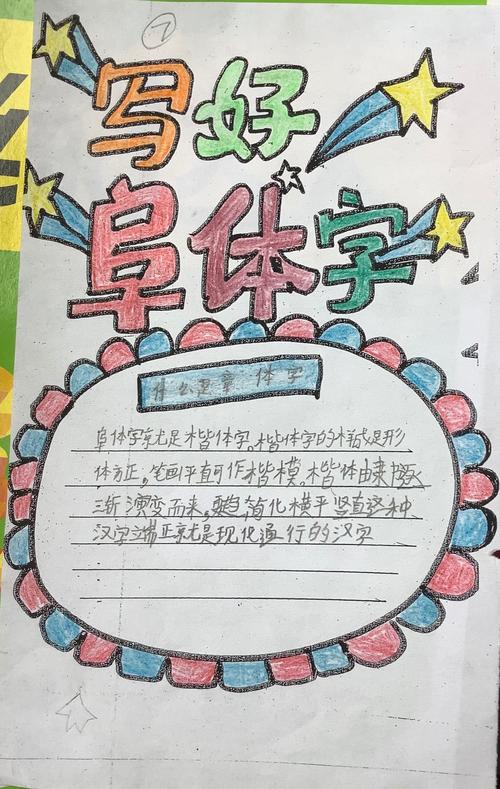 ⑦
写好
阜体字
什么是阜体字
阜体字就是楷体字。楷体字的特就是形
体方正,笔画平直可作楷模。楷体由隶逐
渐演变而来,更趋简化横平竖直这种
汉字端正就是现代通行的汉字